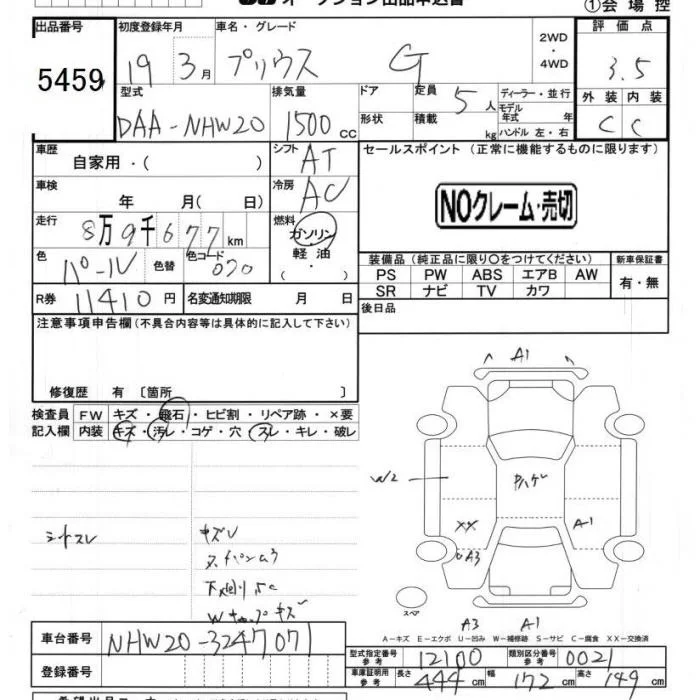 オークション出品申込書
①会場控
出品番号 初度登録年月 車名・グレード 2WD・4WD 評価点
5459 19 3月 プリウス G 3.5
型式 排気量 ドア 定員 5人 ディーラー・並行 外装 内装
DAA-NHW20 1500cc 形状 積載 kg モデル年式 年 ハンドル 左・右 C C
車歴 自家用・( ) シフト AT セールスポイント (正常に機能するものに限ります)
車検 年 月( 日) 冷房 AC
NOクレーム・売切
走行 8万9千677km 燃料 ガソリン・軽油・( )
色 パール 色替 色コード 070
装備品(純正品に限り○をつけてください) 新車保証書
PS PW ABS エアB AW 有・無
SR ナビ TV カワ
R券 11410円 名変通知期限 月 日
後日品
注意事項申告欄(不具合内容等は具体的に記入して下さい)
修復歴 有 〔箇所
検査員記入欄 FW キズ・飛石・ヒビ割・リペア跡・×要
内装 キズ・汚レ・コゲ・穴・スレ・キレ・破レ
A1
W2
XX A1
A3
シートスレ
スペア
A3 A1
A-キズ E-エクボ U-凹み W-補修跡 S-サビ C-腐食 XX-交換済
車台番号 NHW20-3247071
登録番号
型式指定番号 参考 12100 類別区分番号 参考 0021
車庫証明用 参考 長さ 444cm 幅 172cm 高さ 149cm